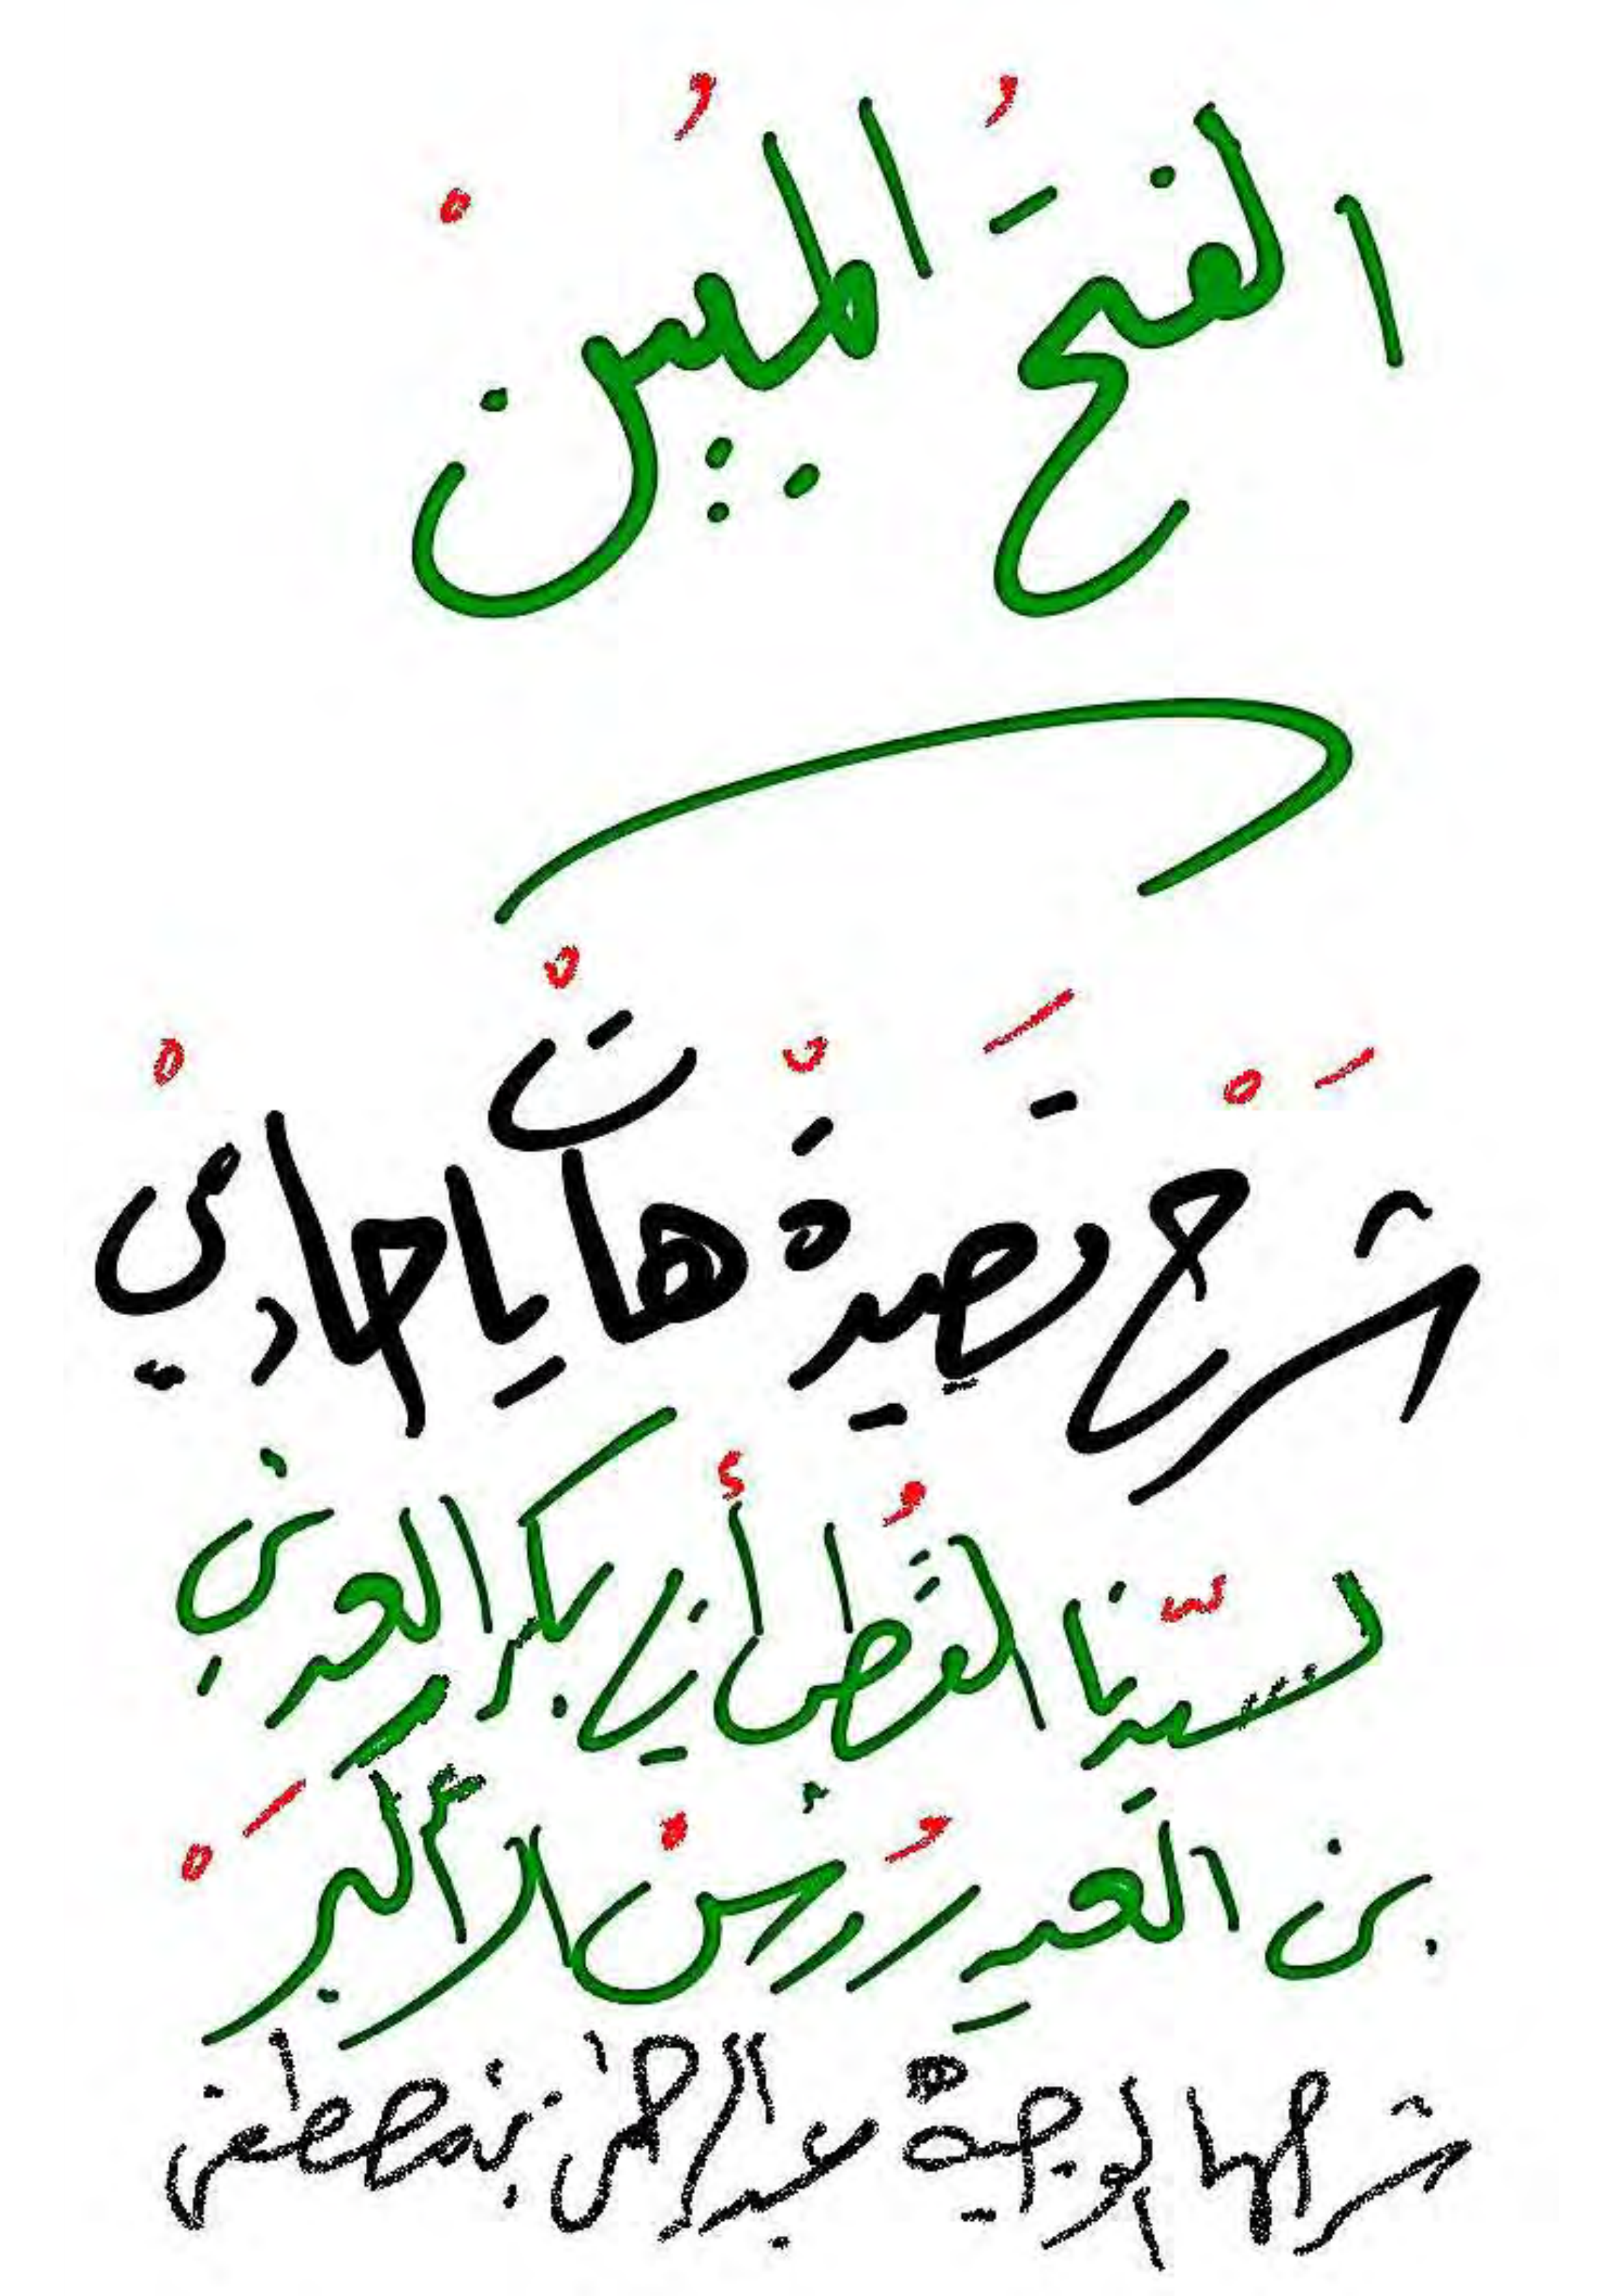 الفتحُ المُبينْ
شَرْحَ قصيدةْ هات يا حادي
لسيّدنا القُطب أبي بكر العدني
بن العيدرُوسْ الأكبَرْ
شرحها الوجيه عبدالرحمن بن مصطفى